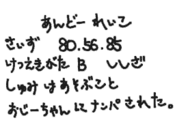 あんどー れいこ
さいず 80.56.85
けつえきがた B ししざ
しゅみはあそぶこと
おじーちゃんにナンパされた。